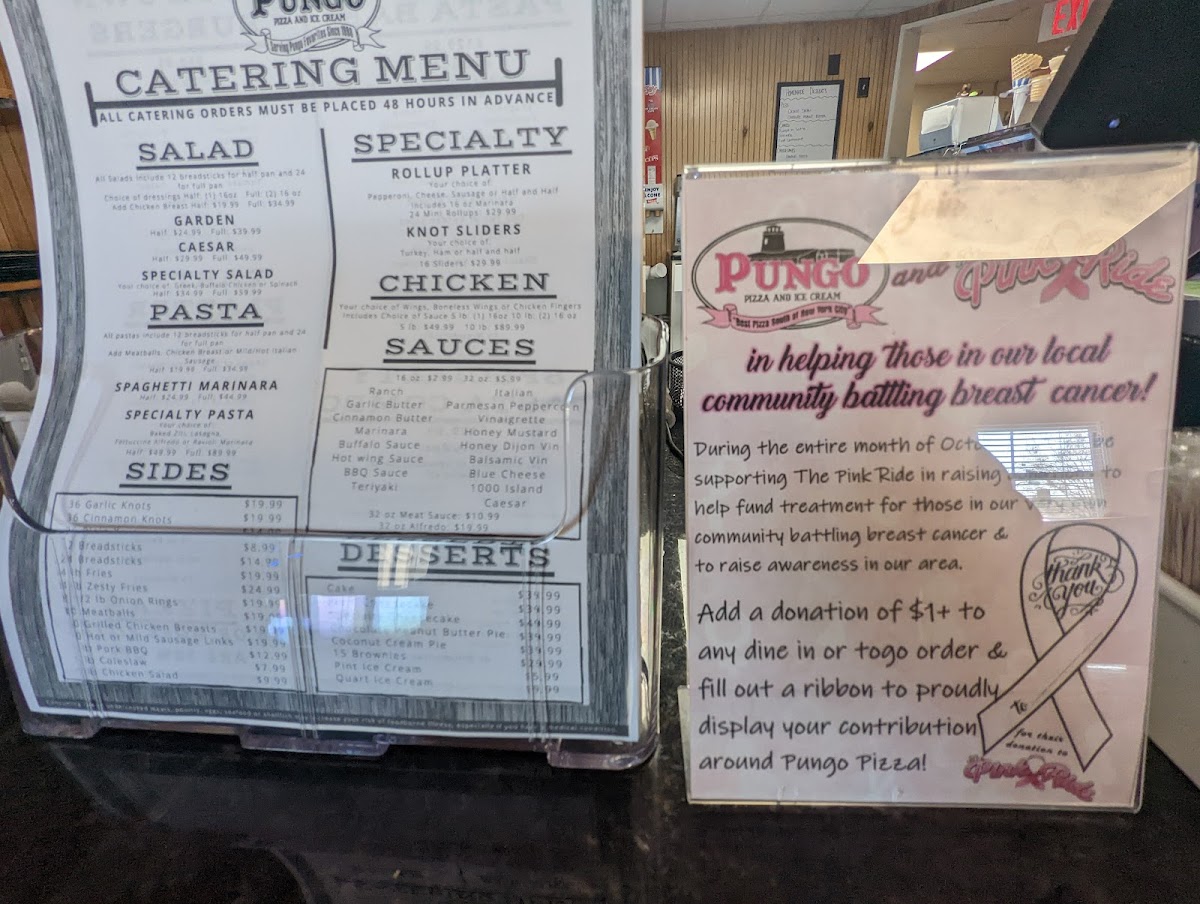 PUNGO
PIZZA AND ICE CREAM
Serving Pungo Favorites Since
CATERING MENU
ALL CATERING ORDERS MUST BE PLACED 48 HOURS IN ADVANCE
SALAD
All Salads include 12 breadsticks for half pan and 24
for full pan
Choice of dressings Half: (1) 16oz Full: (2) 16 oz
Add Chicken Breast Half: $19.99 Full: $34.99
GARDEN
Half: $24.99 Full: $39.99
CAESAR
Half: $29.99 Full: $49.99
SPECIALTY SALAD
Your choice of: Greek, Buffalo Chicken or Spinach
Half: $34.99 Full: $59.99
PASTA
All pastas include 12 breadsticks for half pan and 24
for full pan
Add Meatballs, Chicken Breast or Mild/Hot Italian
Sausage
Half: $19.99 Full: $34.99
SPAGHETTI MARINARA
Half: $24.99 Full: $44.99
SPECIALTY PASTA
Your choice of:
Baked Ziti, Lasagna,
Fettuccine Alfredo or Ravioli Marinara
Half: $49.99 Full: $89.99
SIDES
36 Garlic Knots $19.99
36 Cinnamon Knots $19.99
Breadsticks $8.99
Breadsticks
lb Fries $19.99
lb Zesty Fries $24.99
1/2 lb Onion Rings $19.99
Meatballs
Grilled Chicken Breasts
Hot or Mild Sausage Links $19.99
lb Pork BBQ $12.99
lb Coleslaw $7.99
lb Chicken Salad $9.99
SPECIALTY
ROLLUP PLATTER
Your choice of:
Pepperoni, Cheese, Sausage or Half and Half
Includes 16 oz Marinara
24 Mini Rollups: $29.99
KNOT SLIDERS
Your choice of:
Turkey, Ham or half and half
16 Sliders: $29.99
CHICKEN
Your choice of Wings, Boneless Wings or Chicken Fingers
Includes Choice of Sauce 5 lb: (1) 16oz 10 lb: (2) 16 oz
5 lb: $49.99 10 lb: $89.99
SAUCES
16 oz: $2.99 32 oz: $5.99
Ranch Italian
Garlic Butter Parmesan Peppercorn
Cinnamon Butter Vinaigrette
Marinara Honey Mustard
Buffalo Sauce Honey Dijon Vin
Hot wing Sauce Balsamic Vin
BBQ Sauce Blue Cheese
Teriyaki 1000 Island
Caesar
32 oz Meat Sauce: $10.99
32 oz Alfredo: $19.99
DESSERTS
Cake $39.99
$39.99
$49.99
Peanut Butter Pie $39.99
Coconut Cream Pie $39.99
15 Brownies $29.99
Pint Ice Cream $5.99
Quart Ice Cream $9.99
EXI
PUNGO
PIZZA AND ICE CREAM
Best Pizza South of New York City
and Pink Ride
in helping those in our local
community battling breast cancer!
During the entire month of Octo be
supporting The Pink Ride in raising to
help fund treatment for those in our
community battling breast cancer &
to raise awareness in our area.
Add a donation of $1+ to
any dine in or togo order &
fill out a ribbon to proudly
display your contribution
around Pungo Pizza!
thank
you
To
for their
donation to
Pink Ride